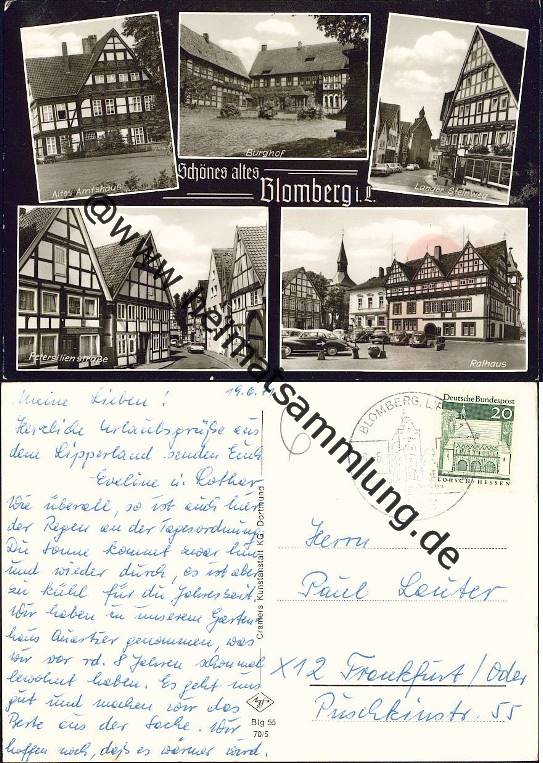 Altes Amtshaus
Burghof
Langer Steinweg
Schönes altes
Blomberg i. L.
Petersilienstraße
Rathaus
@www.heimatsammlung.de
19.6.
Meine Lieben!
Herzliche Urlaubsgrüße aus
dem Lipperland senden Euch
Eveline u. Lothar
Wie überall, so ist auch hier
der Regen an der Tagesordnung.
Die Sonne kommt zwar hin
und wieder durch, es ist aber
zu kühl für die Jahreszeit.
Wir haben in unserem Garten-
haus Quartier genommen, was
wir vor rd. 8 Jahren schon mal
bewohnt haben. Es geht uns
gut und machen wir das
Beste aus der Sache. Wir
hoffen noch, daß es wärmer wird.
Cramers Kunstanstalt KG, Dortmund
Agfa
Blg 55
70/5
BLOMBERG, LIPPE
Deutsche Bundespost
20
LORSCH/HESSEN
Herrn
Paul Lauter
X12 Frankfurt/Oder
Puschkinstr. 55